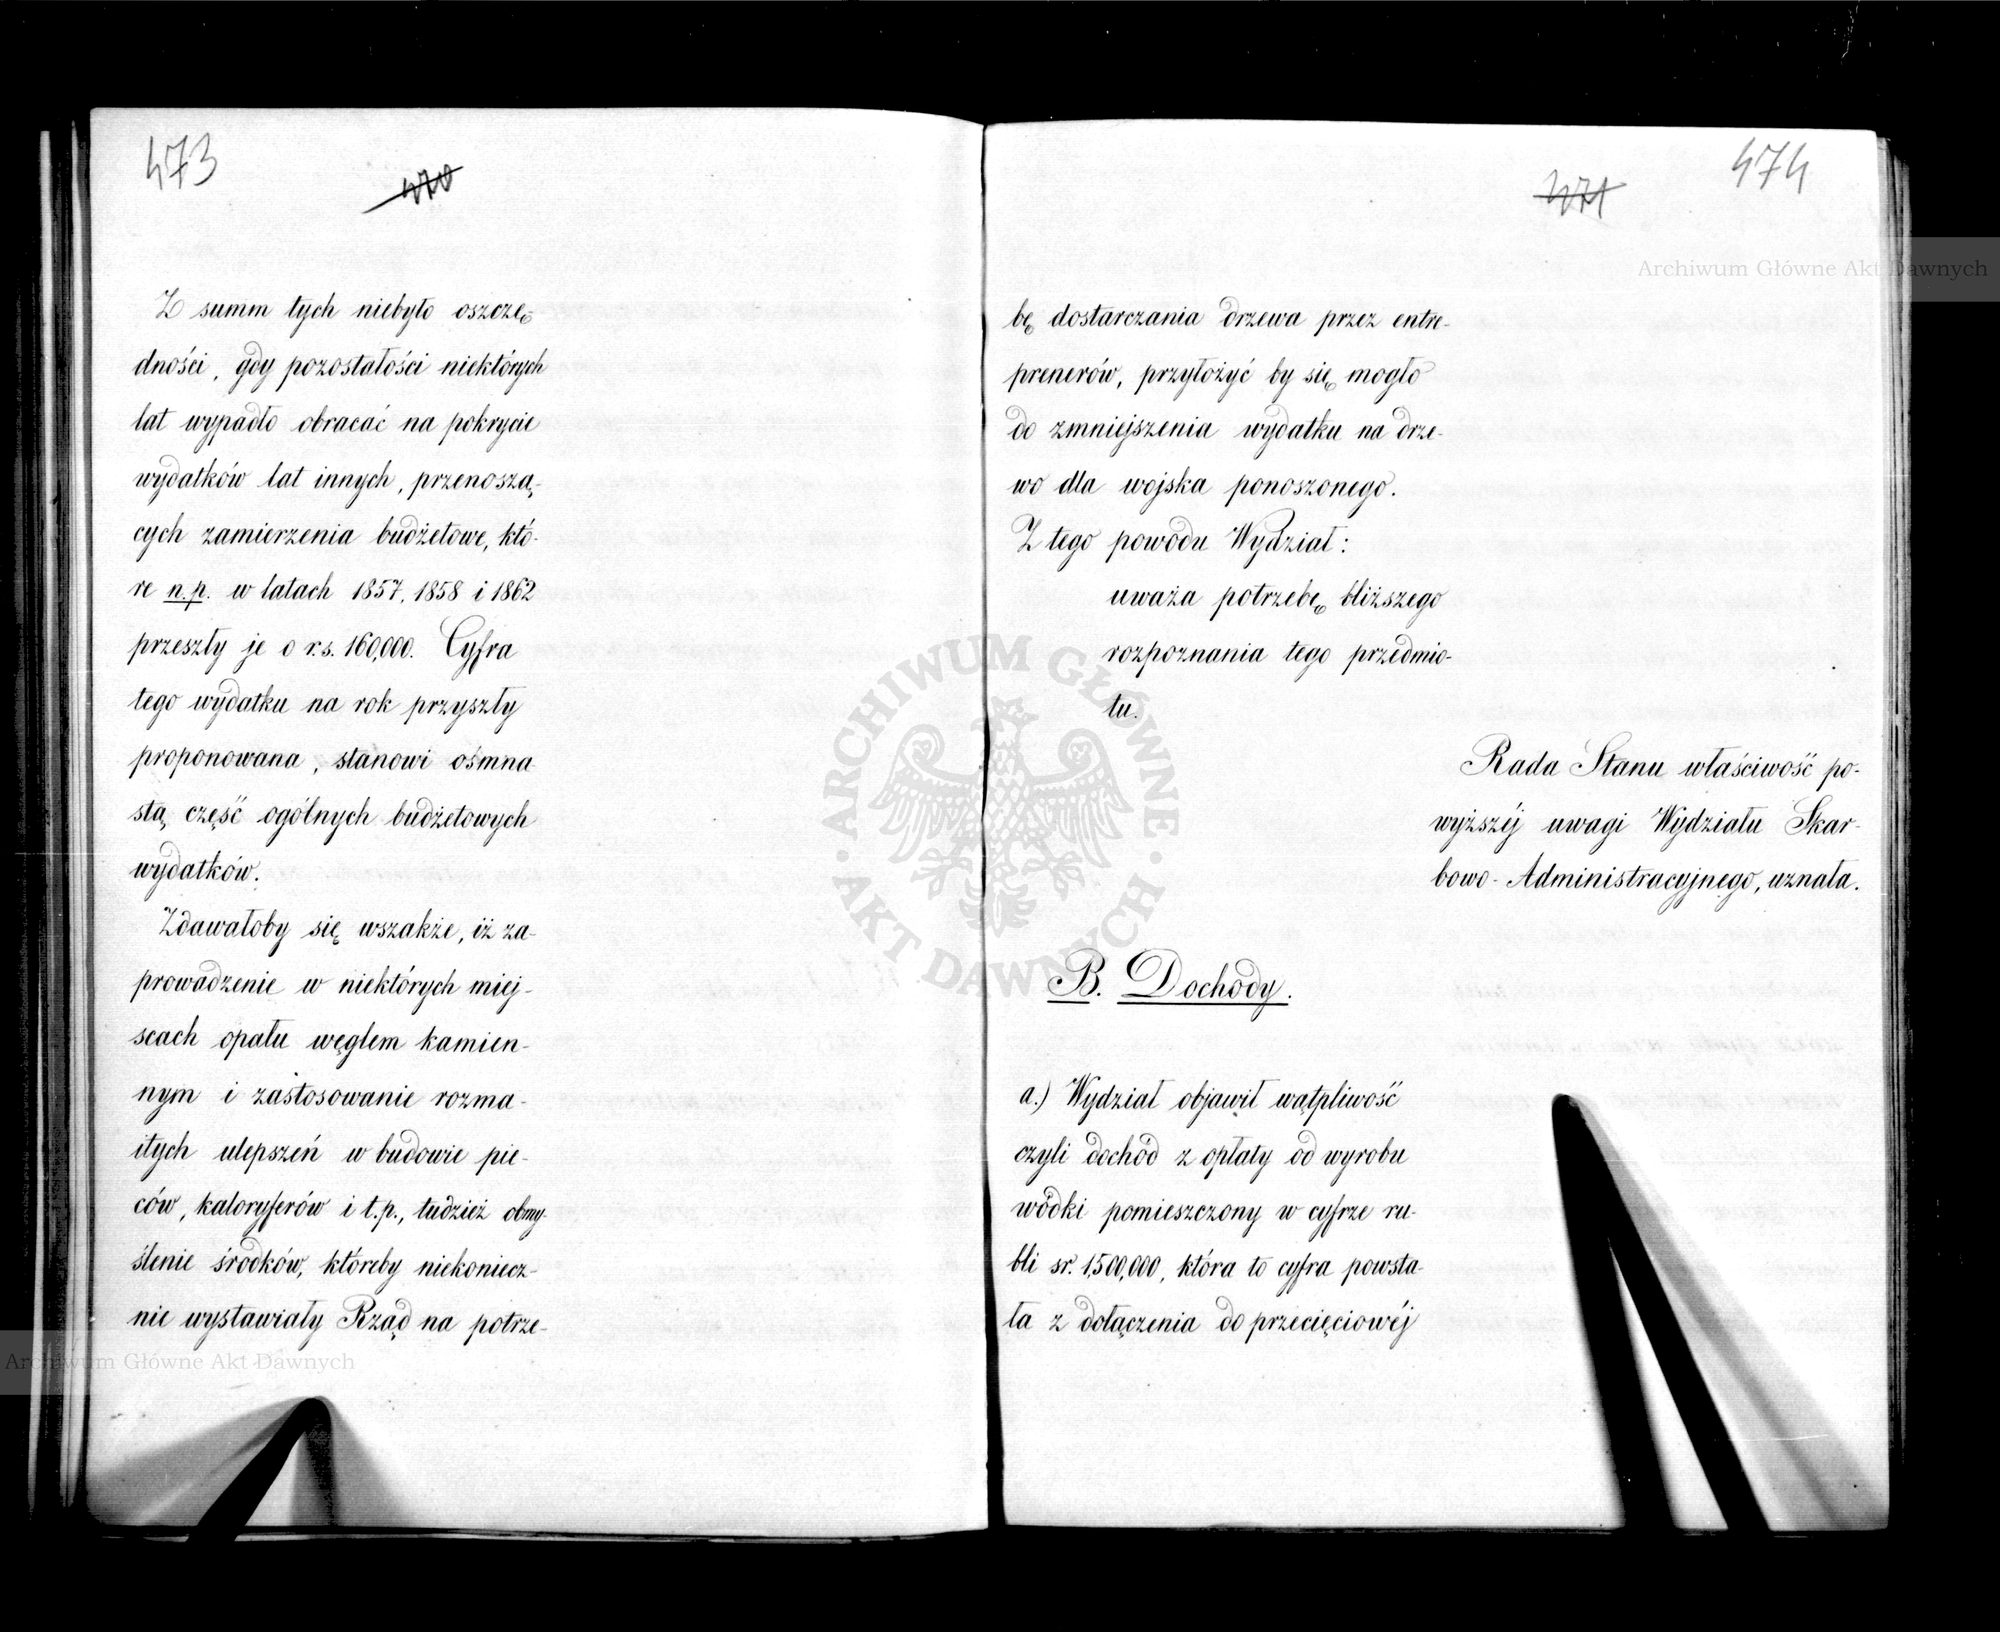 473
470
Z summ tych niebyło oszczę-
dności, gdy pozostałości niektórych
lat wypadło obracać na pokrycie
wydatków lat innych, przenoszą-
cych zamierzenia budżetowe, któ-
re n.p. w latach 1857, 1858 i 1862
przeszły je o r.s. 160,000. Cyfra
tego wydatku na rok przyszły
proponowana, stanowi ośmna
stą część ogólnych budżetowych
wydatków.
Zdawałoby się wszakże, iż za-
prowadzenie w niektórych miej-
scach opału węglem kamien-
nym i zastosowanie rozma-
itych ulepszeń w budowie pie-
ców, kaloryferów i t.p., tudzież obmy-
ślenie środków, któreby niekoniecz-
nie wystawiały Rząd na potrze-
474
471
bę dostarczania drzewa przez entre-
prenerów, przyłożyć by się mogło
do zmniejszenia wydatku na drze-
wo dla wojska ponoszonego.
Z tego powodu Wydział:
uważa potrzebę bliższego
rozpoznania tego przedmio-
tu.
Rada Stanu właściwość po-
wyższéj uwagi Wydziału Skar-
bowo-Administracyjnego, uznała.
B. Dochody.
a.) Wydział objawił wątpliwość
czyli dochód z opłaty od wyrobu
wódki pomieszczony w cyfrze ru-
bli sr. 1,500,000, która to cyfra powsta-
ła z dołączenia do przecięciowéj
Archiwum Główne Akt Dawnych
Archiwum Główne Akt Dawnych
ARCHIWUM GŁÓWNE
AKT DAWNYCH